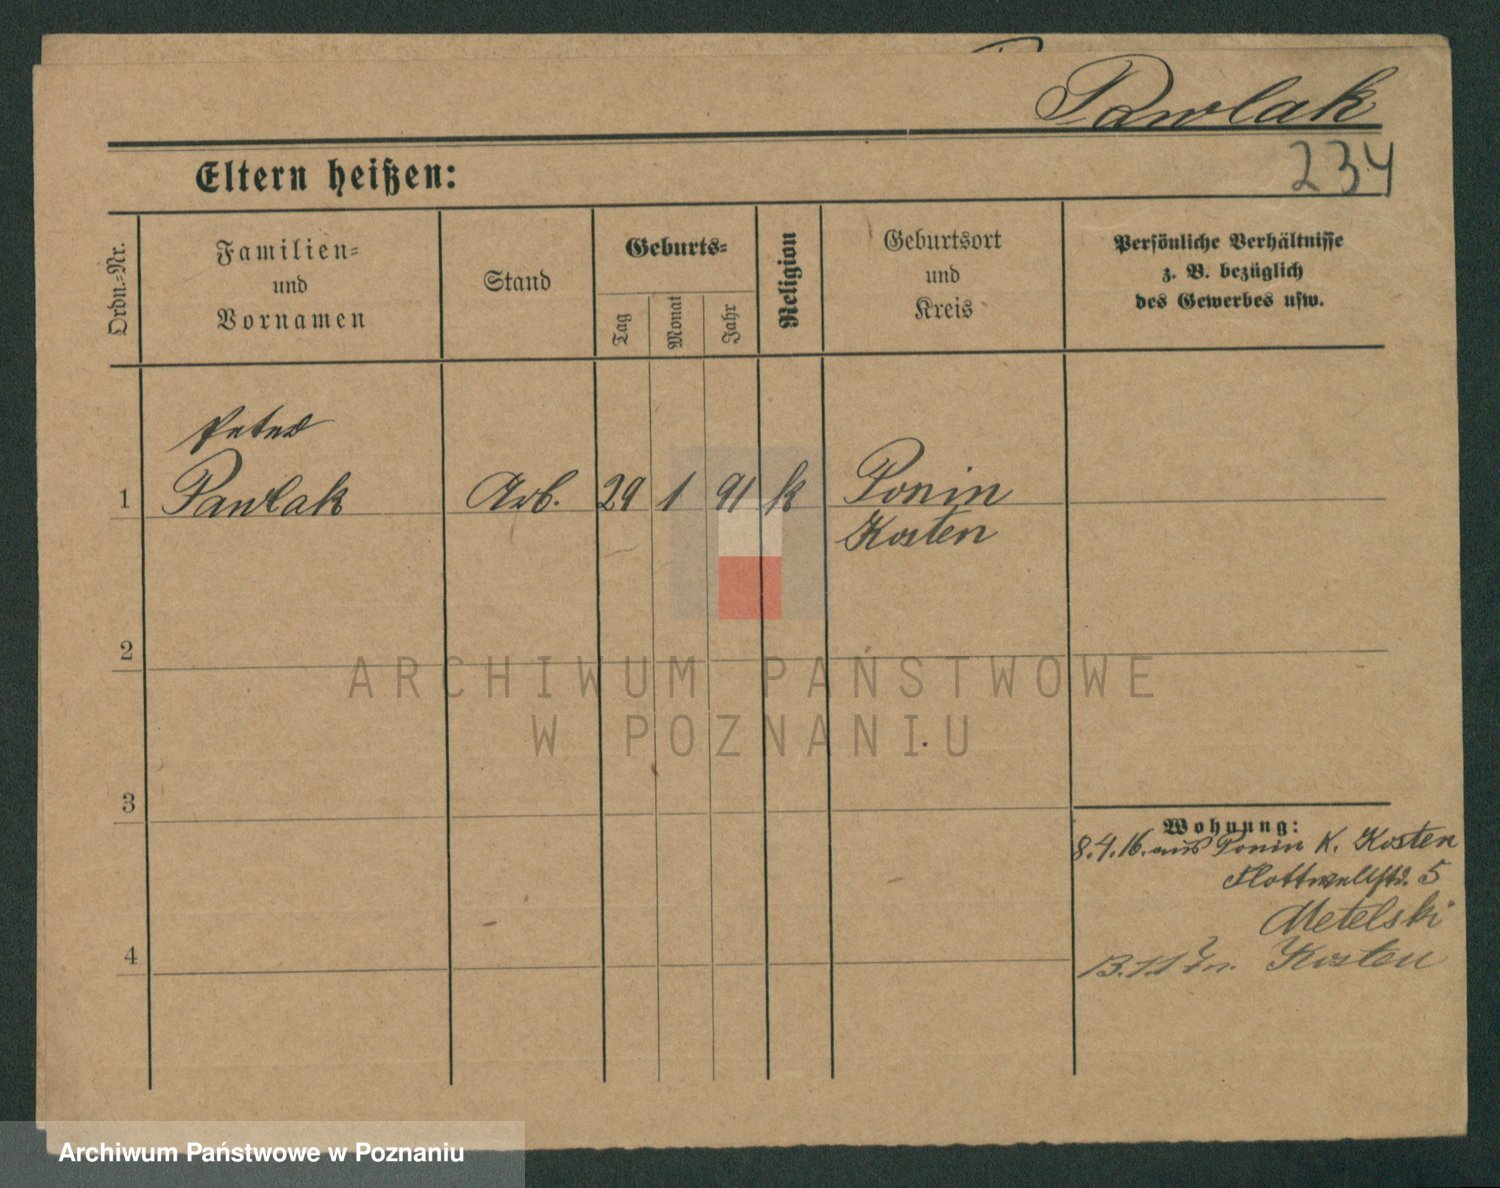 Pawlak
Eltern heißen:
234
Ordn.-Nr.
Familien-
und
Vornamen
Stand
Geburts-
Tag
Monat
Jahr
Religion
Geburtsort
und
Kreis
Persönliche Verhältnisse
z. B. bezüglich
des Gewerbes usw.
Peter
1 Pawlak Arb. 29 1 91 k Ponin
Kosten
2
ARCHIWUM PAŃSTWOWE
W POZNANIU
3
Wohnung:
8.4.16. aus Ponin K. Kosten
Flottwellstr. 5
Metelski
Kosten
4
Archiwum Państwowe w Poznaniu